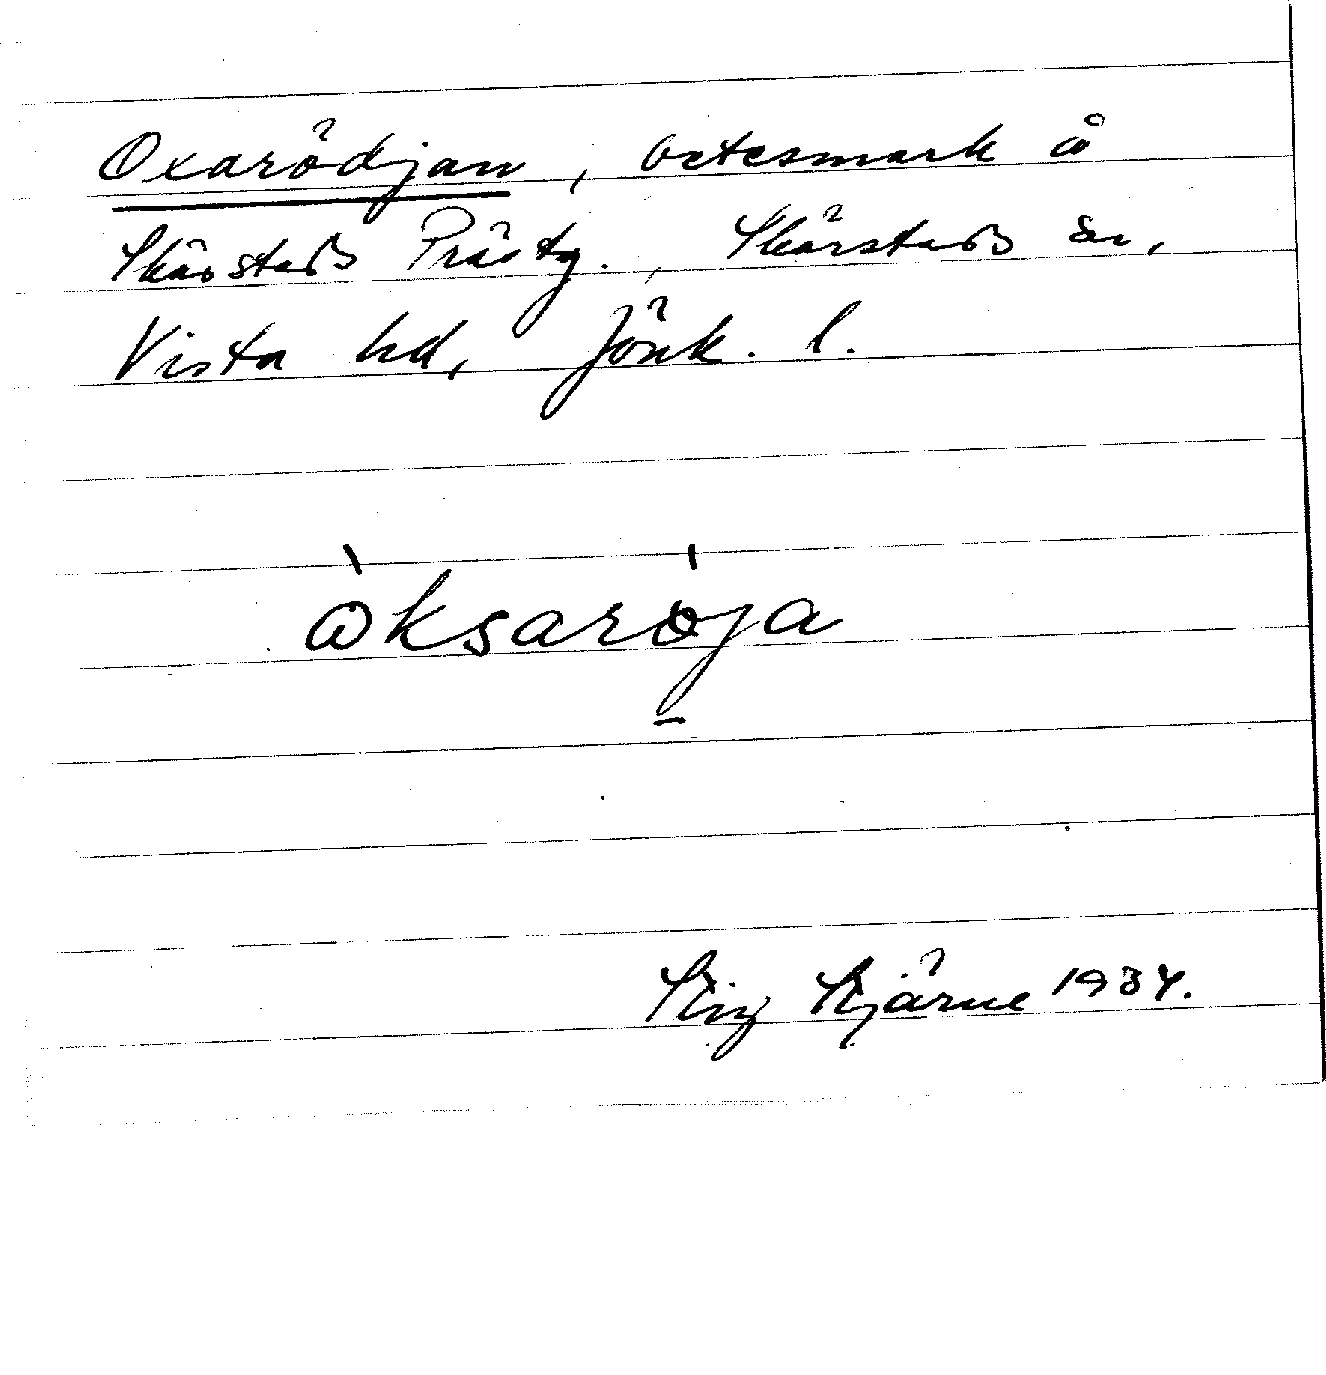 Oxarödjan, betesmark å
Skärstads Prästg., Skärstads sn,
Vista hd, Jönk. l.
òksarö́ja
Stig Stjärne 1934.